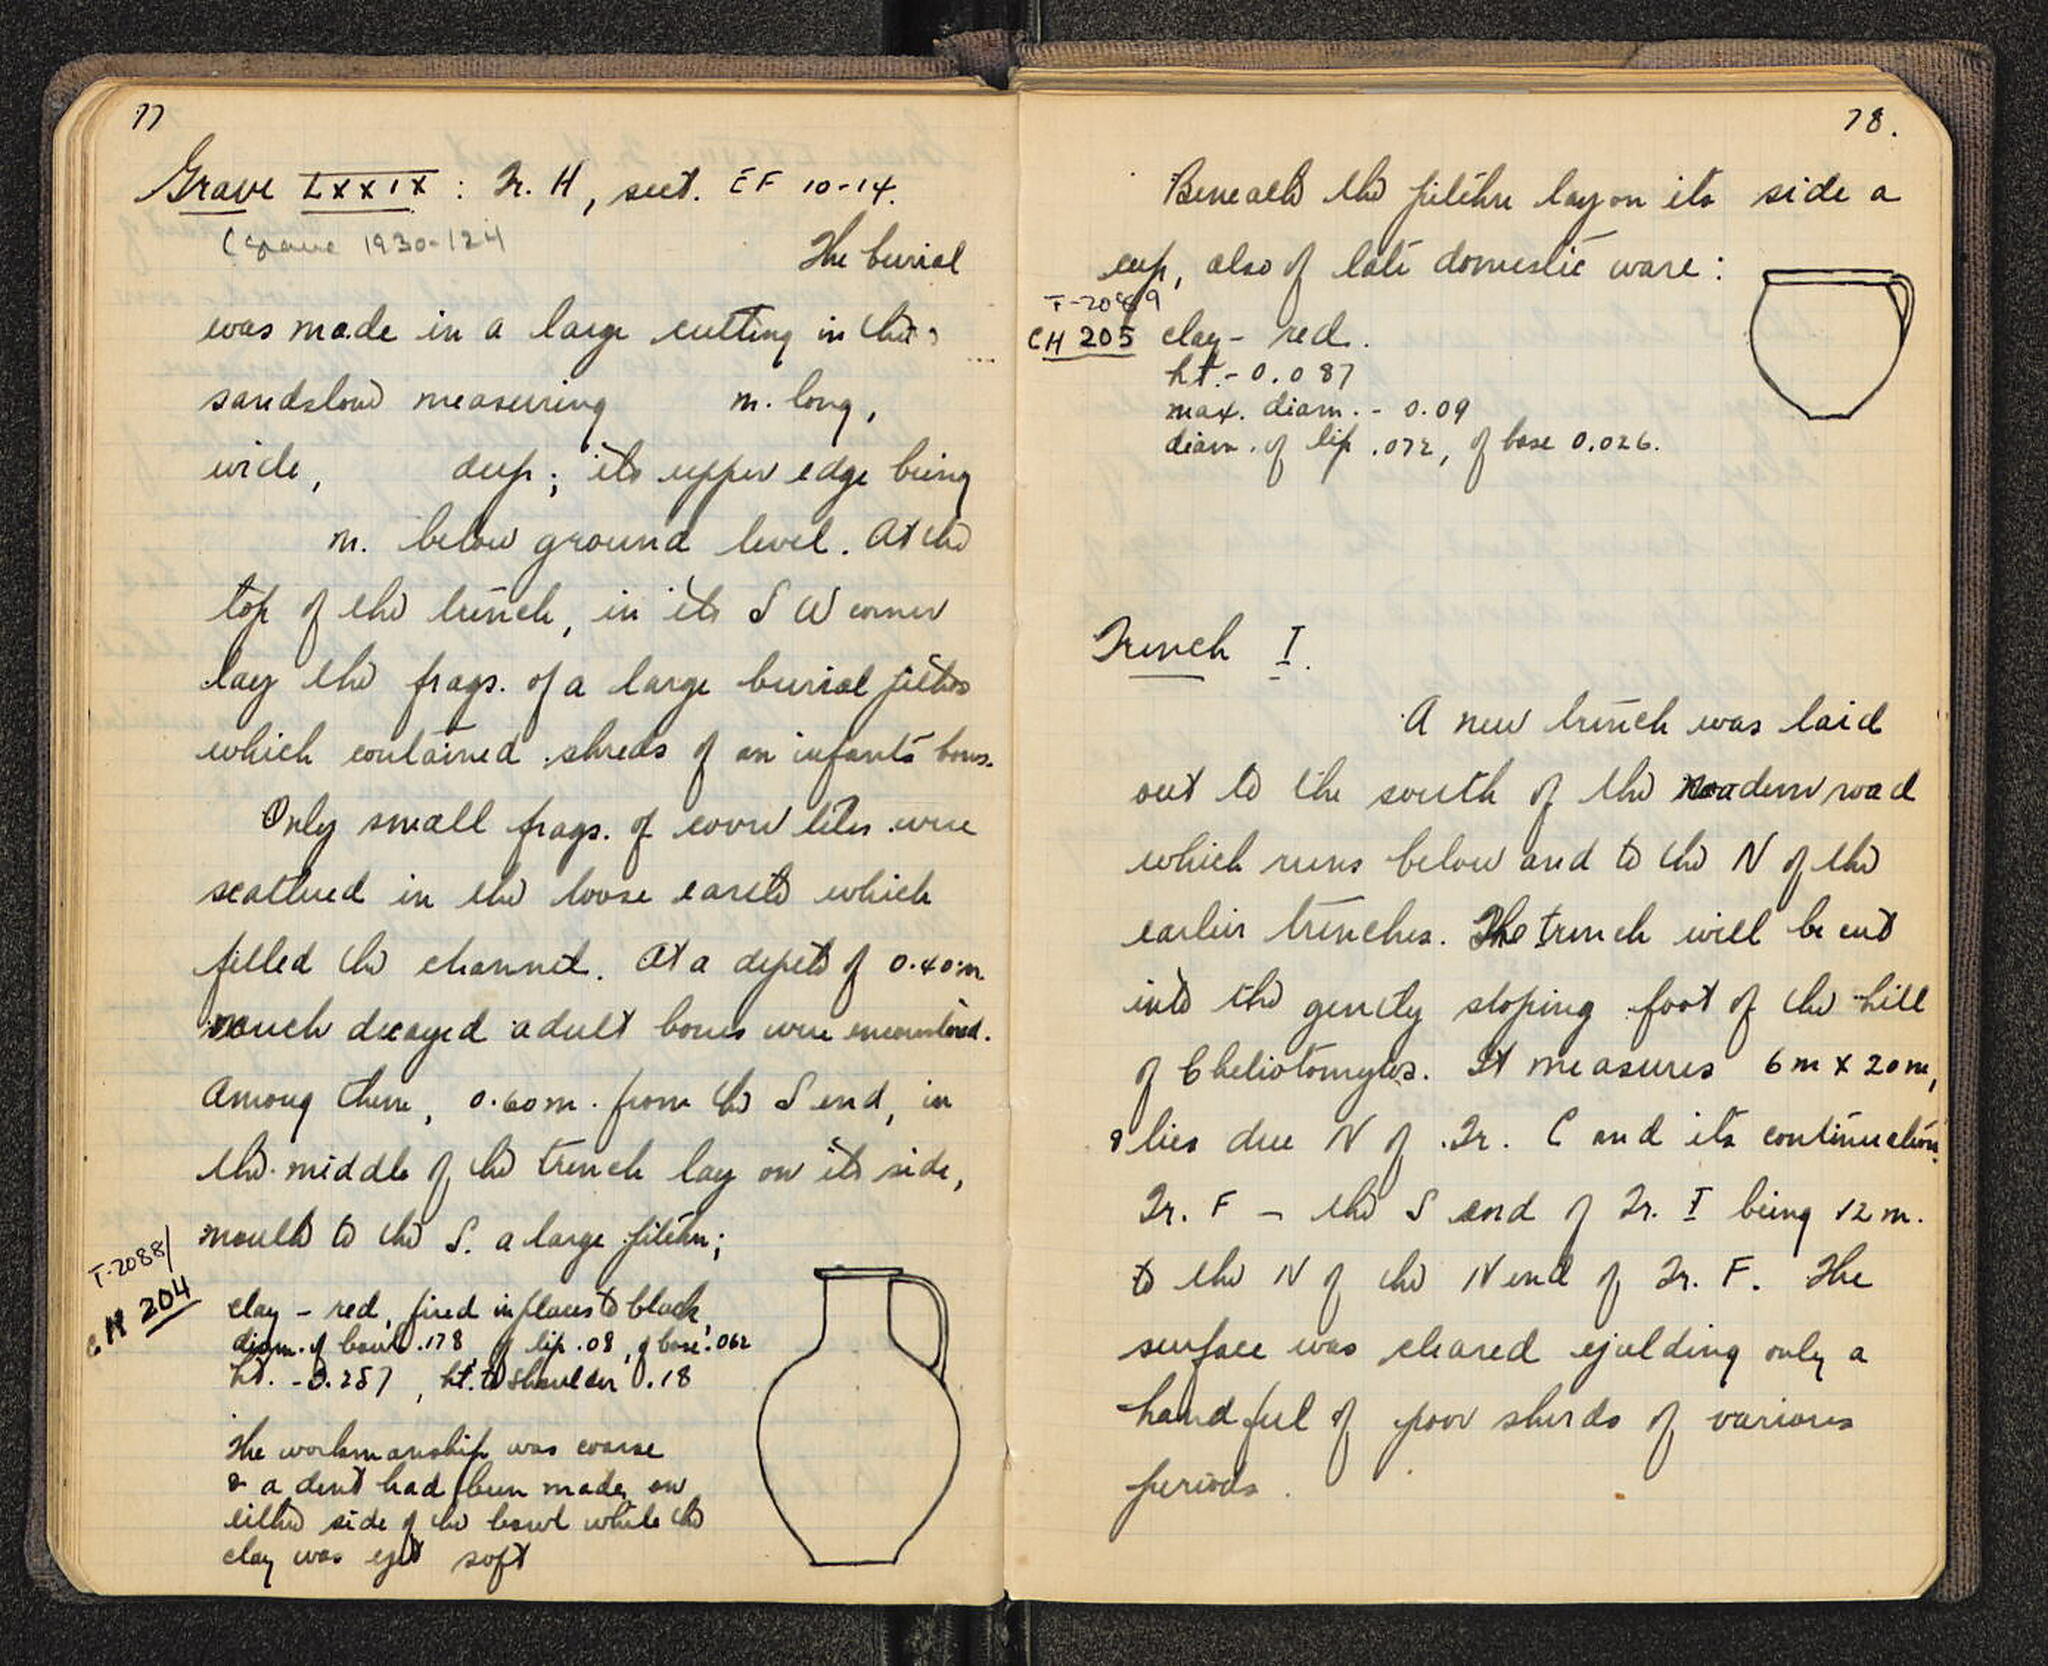 77
Grave LXXIX : Tr. H, sect. EF 10-14.
(Grave 1930-124
The burial
was made in a large cutting in the
sandstone measuring m. long,
wide, deep; its upper edge being
m. below ground level. At the
top of the trench, in its S W corner
lay the frags. of a large burial pithos
which contained shreds of an infant's bones.
Only small frags. of cover tiles were
scattered in the loose earth which
filled the channel. At a depth of 0.40 m
much decayed adult bones were encountered.
Among them, 0.60 m. from the S end, in
the middle of the trench lay on its side,
mouth to the S. a large pitcher;
T-2088/
CH 204
clay - red, fired in places to black,
diam. of bowl .178 of lip .08, of base .062
ht. - 0.257, ht. to shoulder 0.18
The workmanship was coarse
& a dent had been made on
either side of the bowl while the
clay was yet soft
78.
Beneath the pitcher lay on its side a
cup, also of late domestic ware:
T-2089
CH 205 clay - red.
ht. - 0.087
max. diam. - 0.09
diam. of lip .072, of base 0.026.
Trench I.
A new trench was laid
out to the south of the modern road
which runs below and to the N of the
earlier trenches. The trench will be cut
into the gently sloping foot of the hill
of Cheliotomylos. It measures 6 m x 20 m,
& lies due N of Tr. C and its continuation
Tr. F - the S end of Tr. I being 12 m.
to the N of the N end of Tr. F. The
surface was cleared yielding only a
handful of poor sherds of various
periods.